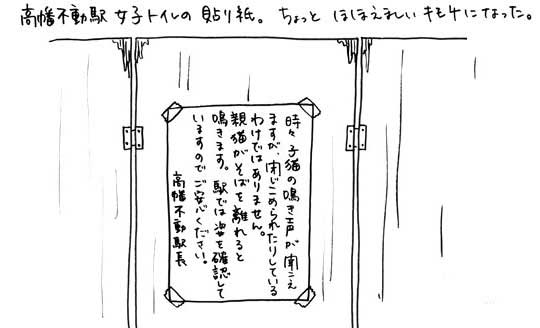 高幡不動駅 女子トイレの貼り紙。ちょっと ほほえましいキモチになった。
時々、子猫の鳴き声が聞こえ
ますが、閉じこめられたりしている
わけではありません。
親猫がそばを離れると
鳴きます。駅では姿を確認して
いますのでご安心ください。
高幡不動駅長